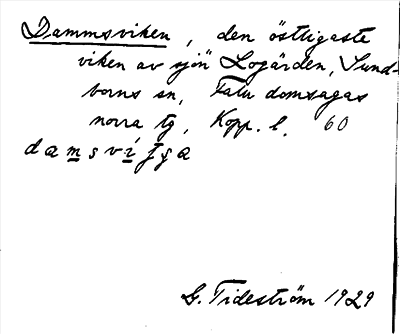 Dammsviken, den östligaste
viken av sjön Logärden, Sund-
borns sn, Falu domsagas
norra tg, Kopp. l. 60
G. Tideström 1929